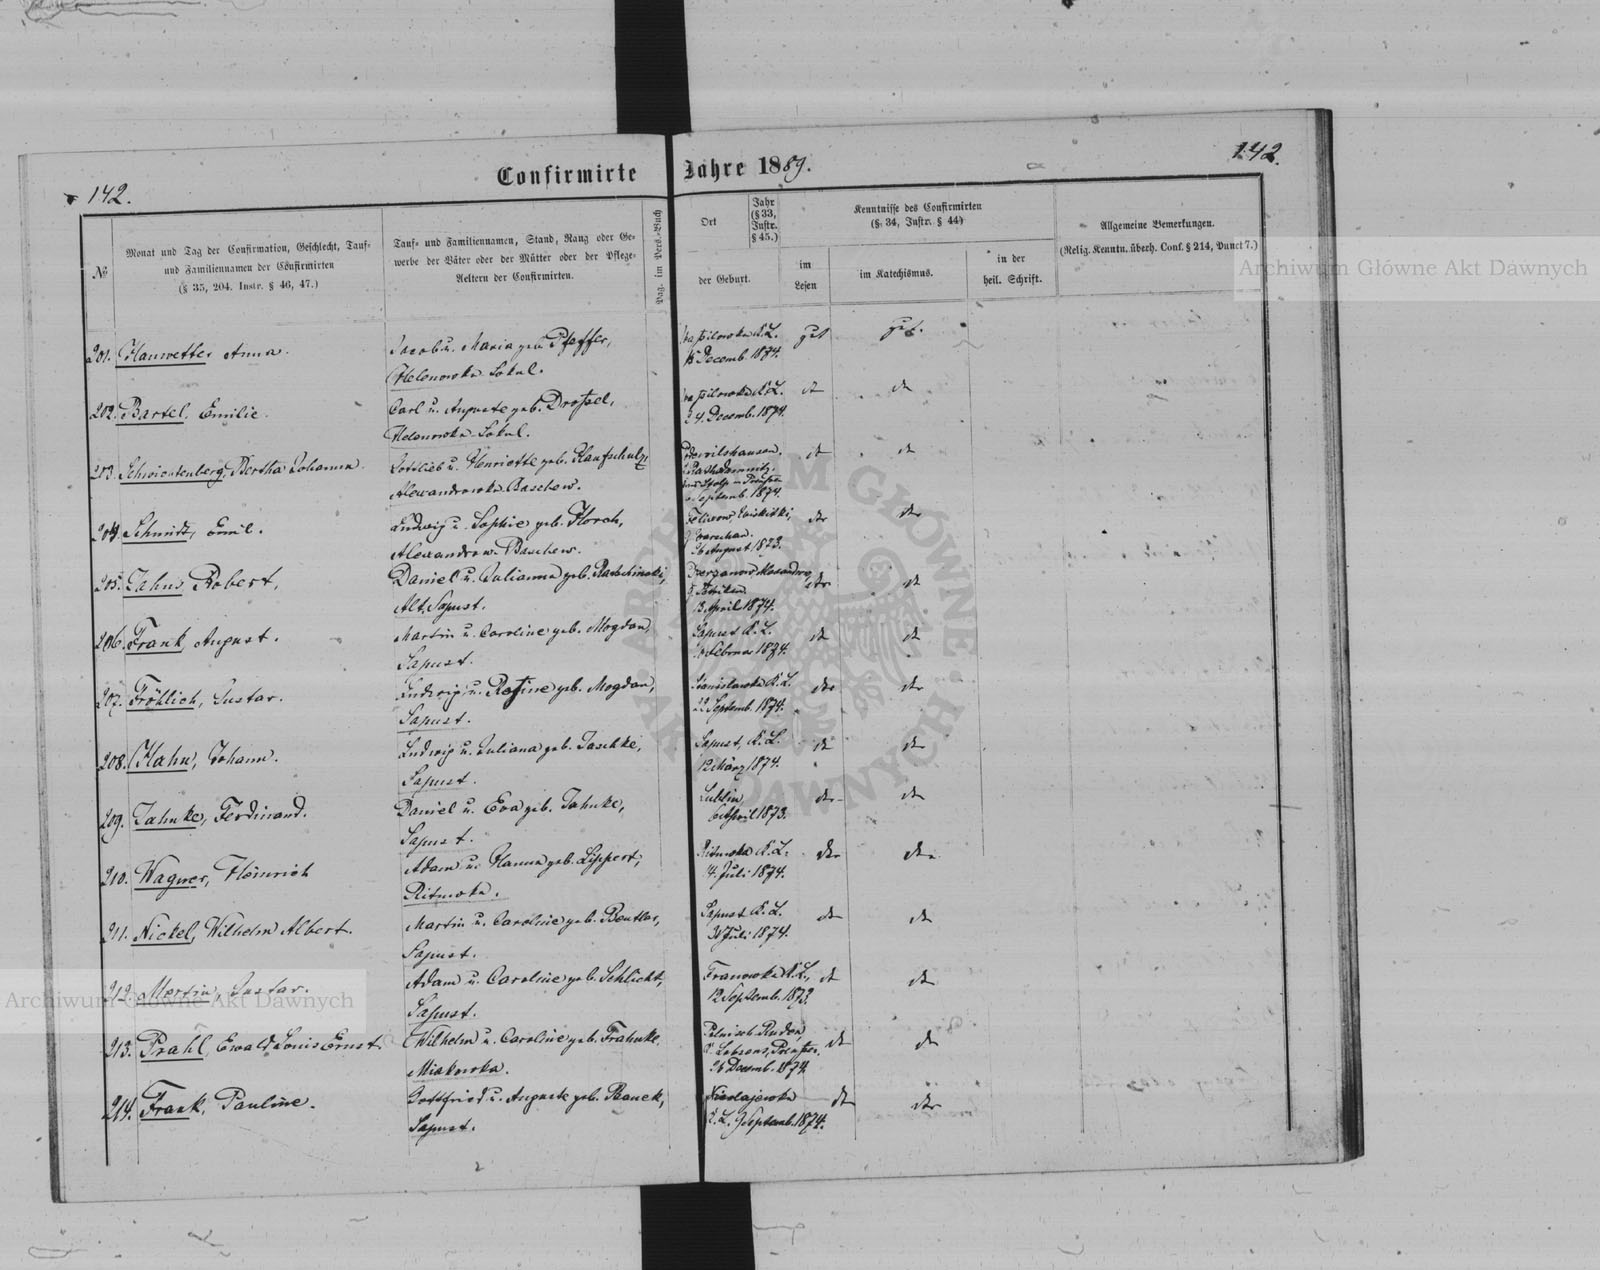 142.
Confirmirte Jahre 1889.
142.
№
Monat und Tag der Confirmation, Geschlecht, Tauf-
und Familiennamen der Confirmirten
(§ 35, 204. Instr. § 46, 47.)
Tauf- und Familiennamen, Stand, Rang oder Ge-
werbe der Väter oder der Mütter oder der Pflege-
Aeltern der Confirmirten.
Pag. im Pers.-Buch
Ort
Jahr
(§ 33,
Instr.
§ 45.)
der Geburt.
Kenntnisse des Confirmirten
(§. 34, Instr. § 44)
im
Lesen
im Katechismus.
in der
heil. Schrift.
Allgemeine Bemerkungen.
(Relig. Kenntn. überh. Conf. § 214, Punct 7.)
Archiwum Główne Akt Dawnych
201. Hauwetter Anna.
Jacob u. Maria geb. Pfeffer,
Helenowka Sokul.
K. L.
15 Decemb. 1874.
gut
gut.
202. Bartel, Emilie.
Carl u. Auguste geb. Droßel,
Helenowka Sokul.
K. L.
24. Decemb. 1874.
203. Schwichtenberg, Bertha Johanna.
Gottlieb u. Henriette geb. Raufschulz,
Alexandrowka Baschew.
Septemb. 1874.
204. Schmidt, Emil.
Ludwig u. Sophie geb. Florch,
Alexandrow. Baschew.
Warschau.
26 August 1873.
205. Jahns, Robert,
Daniel u. Julianna geb.
Alt, Sapust.
13 April 1874.
206. Frank, August.
Martin u. Caroline geb. Mogdan,
Sapust.
Sapust K. L.
1874.
207. Fröhlich, Gustav.
Ludwig u. Rosine geb. Mogdan,
Sapust.
Stanislawka K. L.
22 Septemb. 1874.
208. Hahn, Johann.
Ludwig u. Juliana geb. Jaschke,
Sapust.
Sapust, K. L.
12 März 1874.
209. Jahnke, Ferdinand.
Daniel u. Eva geb. Jahnke,
Sapust.
Lublin,
6 April 1873.
210. Wagner, Heinrich
Adam u. Hanna geb. Lippert,
Ritmoka.
Ritmoka K. L.
14. Juli 1874.
211. Nickel, Wilhelm Albert.
Martin u. Caroline geb. Beutler,
Sapust.
Sapust K. L.
30 Juli 1874.
212. Mertin, Gustav.
Adam u. Caroline geb. Schlicht,
Sapust.
Franowka K. L.,
12 Septemb. 1873.
213. Prahl, Ewald Louis Ernst
Wilhelm u. Caroline geb. Frahnke
Miakowka.
26 Decemb. 1874.
214. Frank, Pauline.
Gottfried u. Auguste geb. Banek,
Sapust.
Nicolajewka
K. L. 9 Septemb. 1874.
Archiwum Główne Akt Dawnych
ARCHIWUM GŁÓWNE AKT DAWNYCH